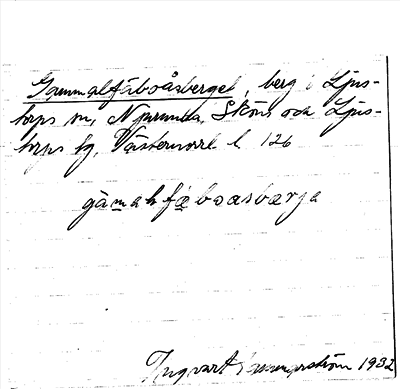 Gammalfäboåsberget, berg i Ljus-
torps sn, Njurunda, Sköns och Ljus-
torps tg, Västernorrl l 126
gàmalfæboasbærja
Ingvart 1932